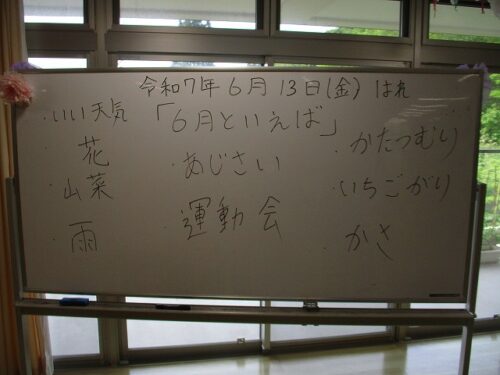 令和7年6月13日(金) はれ
「6月といえば」
・いい天気
花
・山菜
・雨
・あじさい
・運動会
・かたつむり
・いちごがり
・かさ